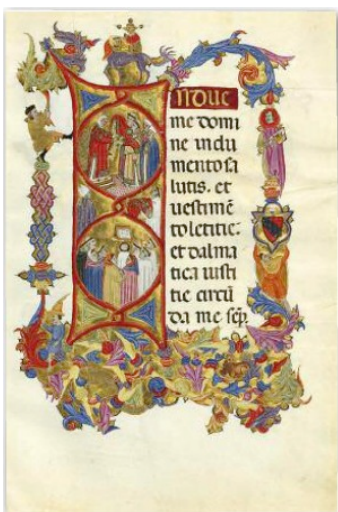 NDUE
me domi
ne indu
mento sa
lutis. et
uestimē
to letitie:
et dalma
tica iusti
tie circū
da me sēp.